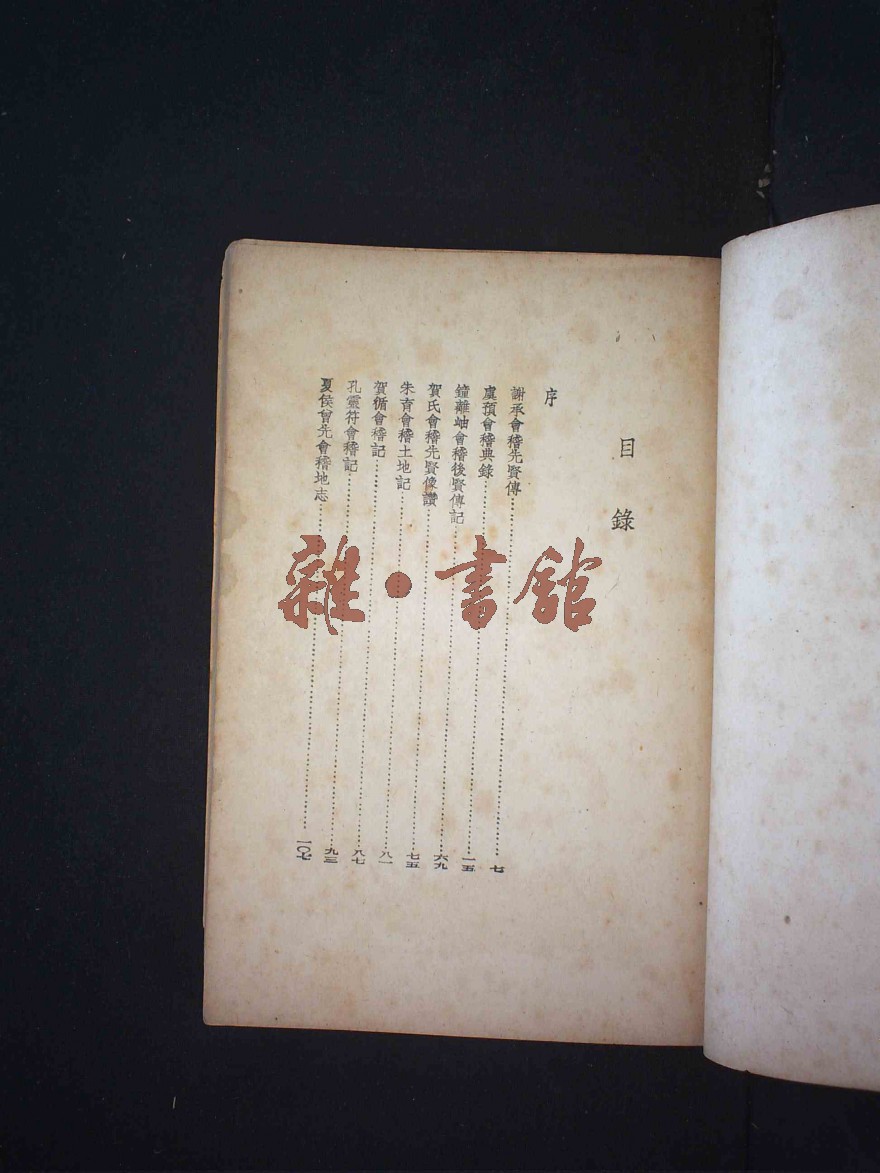 目錄
序
謝承會稽先賢傳……七
虞預會稽典錄……一五
鐘離岫會稽後賢傳記……六九
賀氏會稽先賢像讚……七五
朱育會稽土地記……八一
賀循會稽記……八七
孔靈符會稽記……九三
夏侯曾先會稽地志……一〇七
雜·書館